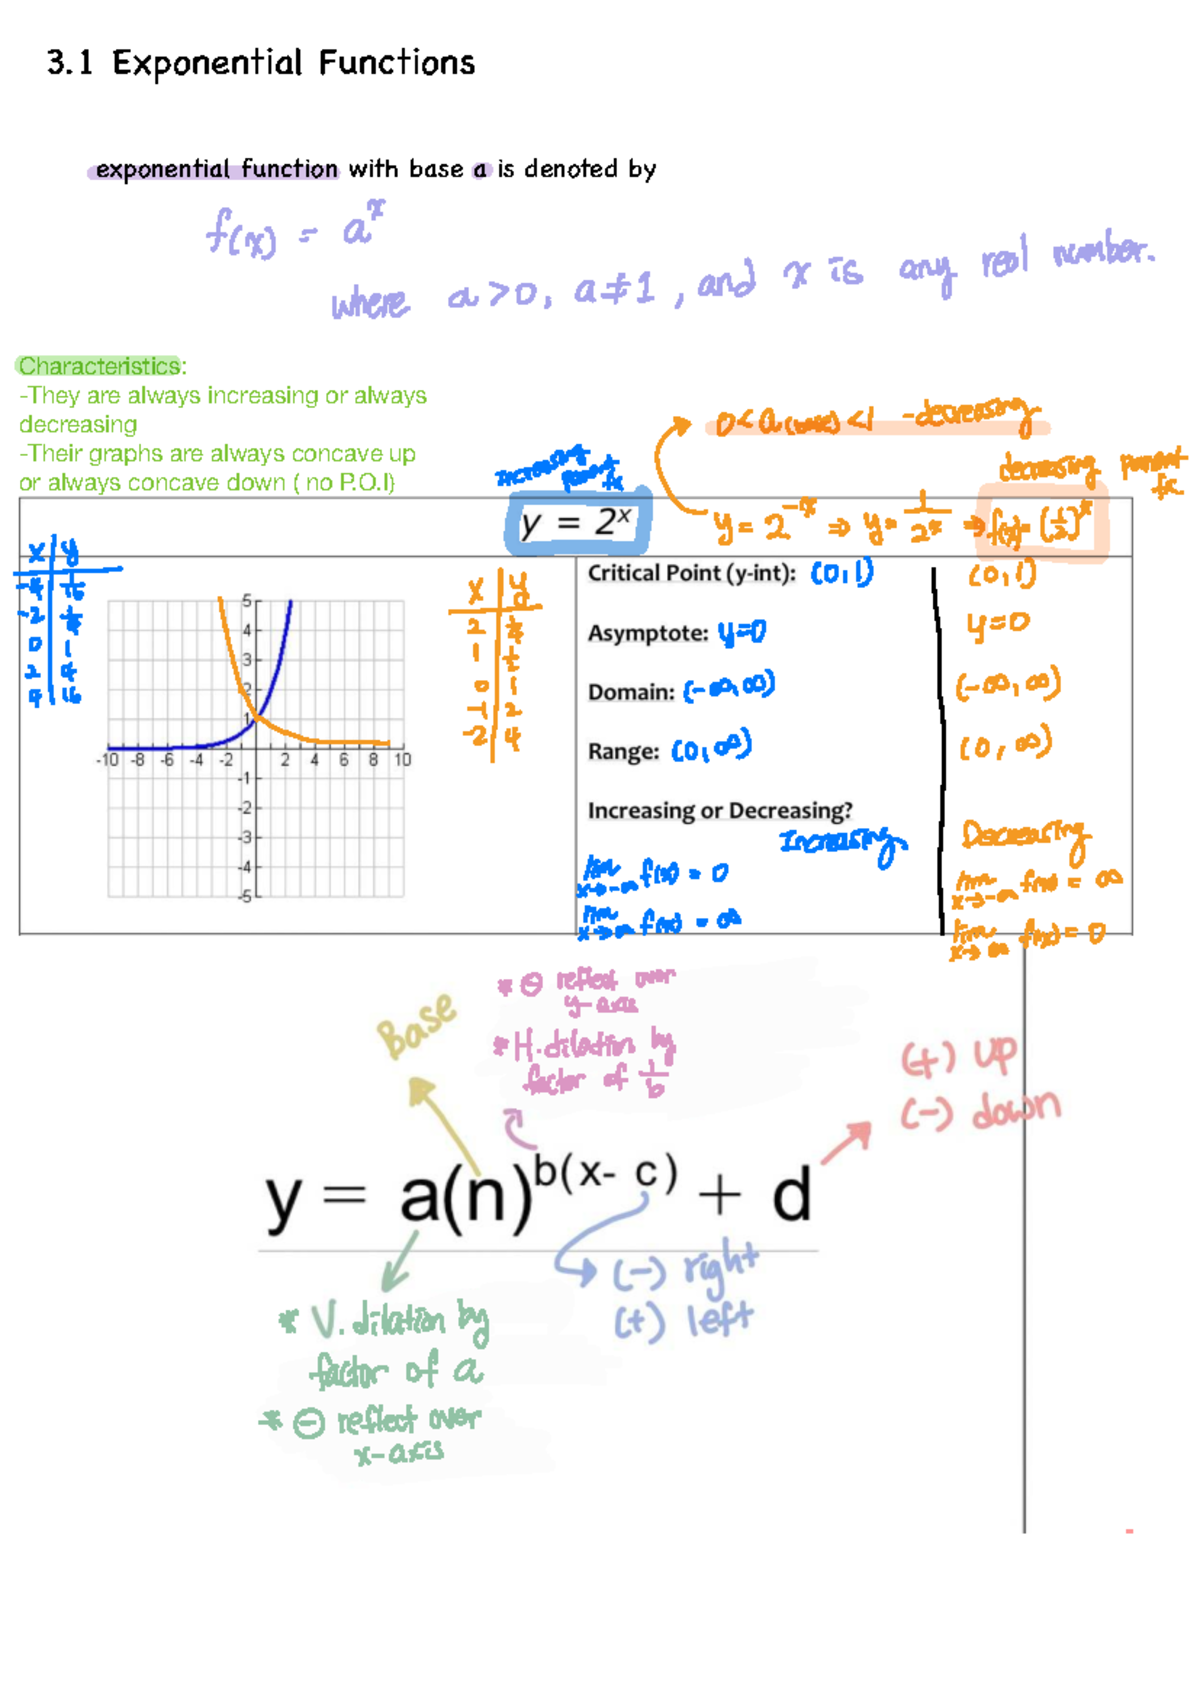 3.1 Exponential Functions
exponential function with base a is denoted by
f(x) = a^x
where a>0, a≠1, and x is any real number.
Characteristics:
-They are always increasing or always
decreasing
-Their graphs are always concave up
or always concave down ( no P.O.I)
0<a(base)<1 -decreasing
Increasing
parent
fx
decreasing parent
fx
y = 2^x
y = 2^-x ⇒ y = 1/2^x ⇒ f(x)=(1/2)^x
x y
-2 1/4
0 1
2 4
4 16
x y
2 1/4
1 1/2
0 1
-1 2
-2 4
5
4
3
2
1
-10 -8 -6 -4 -2 2 4 6 8 10
-1
-2
-3
-4
-5
Critical Point (y-int): (0,1) (0,1)
Asymptote: y=0 y=0
Domain: (-∞,∞) (-∞,∞)
Range: (0,∞) (0,∞)
Increasing or Decreasing?
Increasing Decreasing
lim x→-∞ f(x) = 0 lim x→-∞ f(x) = ∞
lim x→∞ f(x) = ∞ lim x→∞ f(x) = 0
Base
* ⊖ reflect over
y-axis
* H. dilation by
factor of 1/b
(+) up
(-) down
y = a(n)^b(x- c) + d
(-) right
(+) left
* V. dilation by
factor of a
* ⊖ reflect over
x-axis